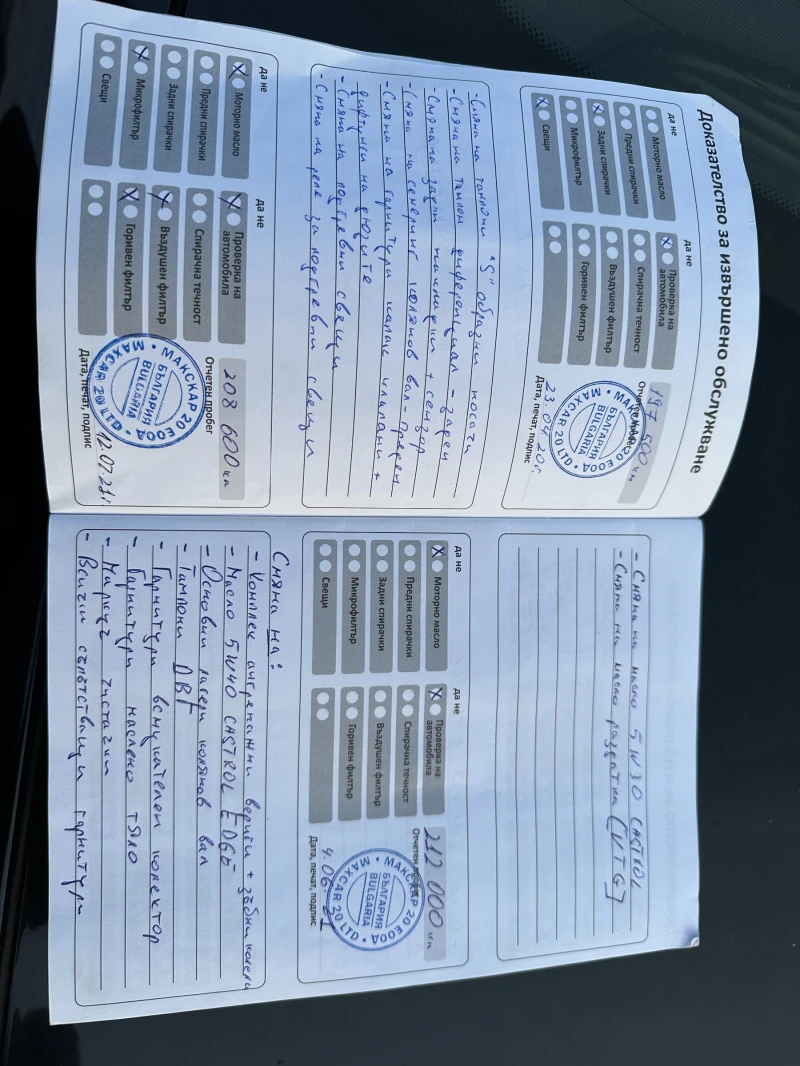 Доказателство за извършено обслужване
да не
да не
Моторно масло
Проверка на автомобила
Предни спирачки
Спирачна течност
Задни спирачки
Въздушен филтър
Микрофилтър
Горивен филтър
Свещи
197 500 км
Отчетен пробег
МАКСКАР 20 ЕООД • MAXCAR 20 LTD •
БЪЛГАРИЯ
BULGARIA
23.04.20г.
Дата, печат, подпис
- Смяна на тампони "S" образни носачи
- Смяна на тампон диференциал - заден
- Смяна на задни накладки + сензор
- Смяна на семеринг колянов вал - преден
- Смяна на гарнитури капак клапани +
дифузори на дюзите
- Смяна на подгревни свещи
- Смяна на реле за подгревни свещи
да не
да не
Моторно масло
Проверка на автомобила
Предни спирачки
Спирачна течност
Задни спирачки
Въздушен филтър
Микрофилтър
Горивен филтър
Свещи
208 600 км
Отчетен пробег
МАКСКАР 20 ЕООД • MAXCAR 20 LTD •
БЪЛГАРИЯ
BULGARIA
Дата, печат, подпис
- Смяна на масло 5W30 CASTROL
- Смяна на масло раздатка (VTG)
да не
да не
Моторно масло
Проверка на автомобила
Предни спирачки
Спирачна течност
Задни спирачки
Въздушен филтър
Микрофилтър
Горивен филтър
Свещи
212 000 км
Отчетен пробег
МАКСКАР 20 ЕООД • MAXCAR 20 LTD •
БЪЛГАРИЯ
BULGARIA
4.06.21
Дата, печат, подпис
Смяна на:
- Комплект ангренажни вериги + зъбни колела
- Масло 5W40 CASTROL EDGE
- Основни лагери колянов вал
- Тампони ДВГ
- Гарнитури всмукателен колектор
- Гарнитури маслено тяло
- Маркуч чистачки
- Всички съпътстващи гарнитури